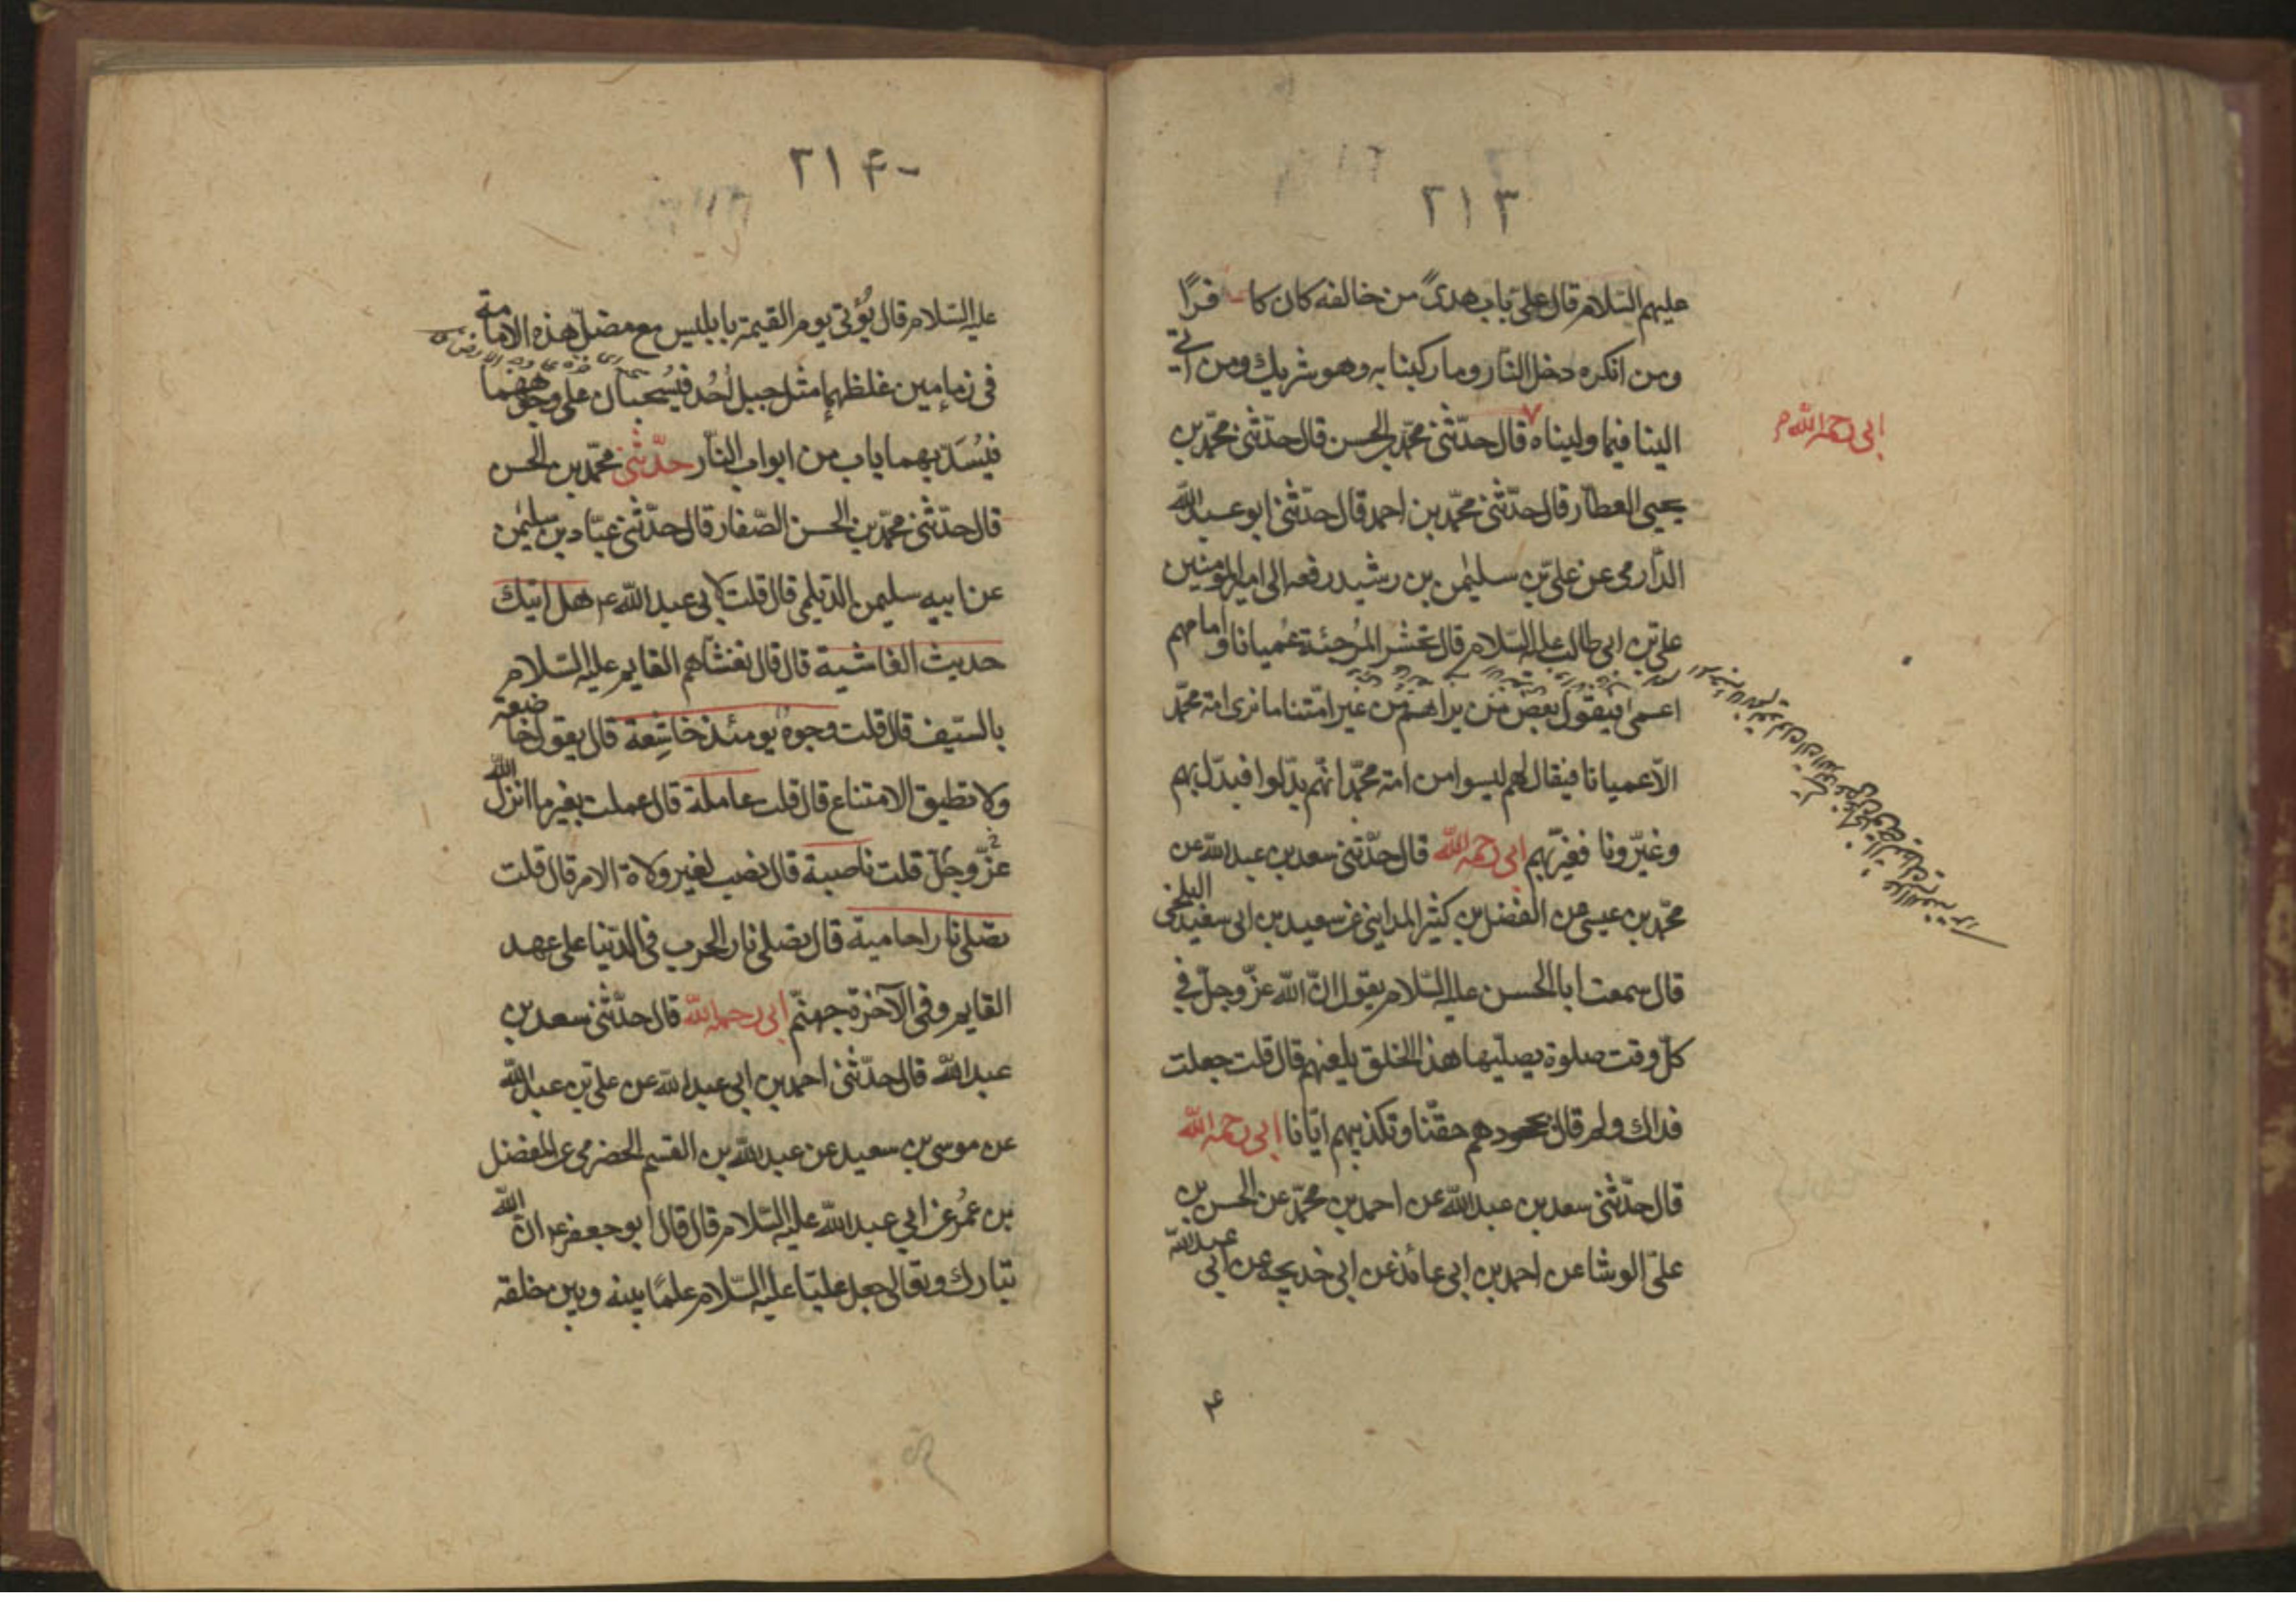 ۲۱۳
عليهم السّلام قال علىّ باب هدىً من خالفه كان كافرًا
ومن انكره دخل النّار وما ركبنا به وهو شريك ومن اتى
الينا فيما وليناه قال حدّثنى محمّد بن الحسن قال حدّثنى محمّد بن
ابى رحمه الله
يحيى العطّار قال حدّثنى محمّد بن احمد قال حدّثنى ابو عبد الله
الدّارمى عن علىّ بن سليمن بن رشيد رفعه الى امير المؤمنين
علىّ بن ابى طالب عليه السّلام قال تحشر المُرجئة عُميانا وامامهم
اعمى فيقول بعض من يراهم من غير امّتنا ما نرى امة محمّد
الّا عميانا فيقال لهم ليسوا من امة محمّد انّهم بدّلوا فبدّل بهم
وغيّروا فغيّر بهم ابى رحمه الله قال حدّثنى سعد بن عبد الله عن
محمّد بن عيسى عن الفضل بن كثير المداينى عن سعيد بن ابى سعيد البلخى
قال سمعت ابا الحسن عليه السّلام يقول انّ الله عزّ وجلّ فى
كلّ وقت صلوة يصلّيها هذا الخلق يلعنهم قال قلت جعلت
فداك ولم قال بجحودهم حقّنا وتكذيبهم ايّانا ابى رحمه الله
قال حدّثنى سعد بن عبد الله عن احمد بن محمّد عن الحسن بن
علىّ الوشا عن احمد بن ابى عائذ عن ابى خديجة عن ابى عبد الله
۲۱۴
عليه السّلام قال يُؤتى يوم القيمة بابليس مع مضلّ هذه الامة
فى زمامين غلظهما مثل جبل اُحُد فيُسحبان على وجوههما
فيُسَدّ بهما باب من ابواب النّار حدّثنى محمّد بن الحسن
قال حدّثنى محمّد بن الحسن الصّفار قال حدّثنى عبّاد بن سليمن
عن ابيه سليمن الدّيلمى قال قلت لابى عبد الله ع هل اتيك
حديث الغاشية قال قال تغشاهم القايم عليه السّلام
بالسّيف قال قلت وجوهٌ يومئذ خاشِعة قال يقول خاضعة
ولا تطيق الامتناع قال قلت عاملة قال عملت بغير ما انزل الله
عزّ وجلّ قلت ناصبة قال نصب لغير ولاة الامر قال قلت
تصلى نارا حامية قال تصلى نار الحرب فى الدّنيا على عهد
القايم وفى الآخرة جهنّم ابى رحمه الله قال حدّثنى سعد بن
عبد الله قال حدّثنى احمد بن ابى عبد الله عن علىّ بن عبد الله
عن موسى بن سعيد عن عبد الله بن القسم الحضرمى عن المفضل
بن عُمر عن ابى عبد الله عليه السّلام قال قال ابو جعفر ع ان الله
تبارك وتعالى جعل عليّا عليه السّلام علمًا بينه وبين خلقه